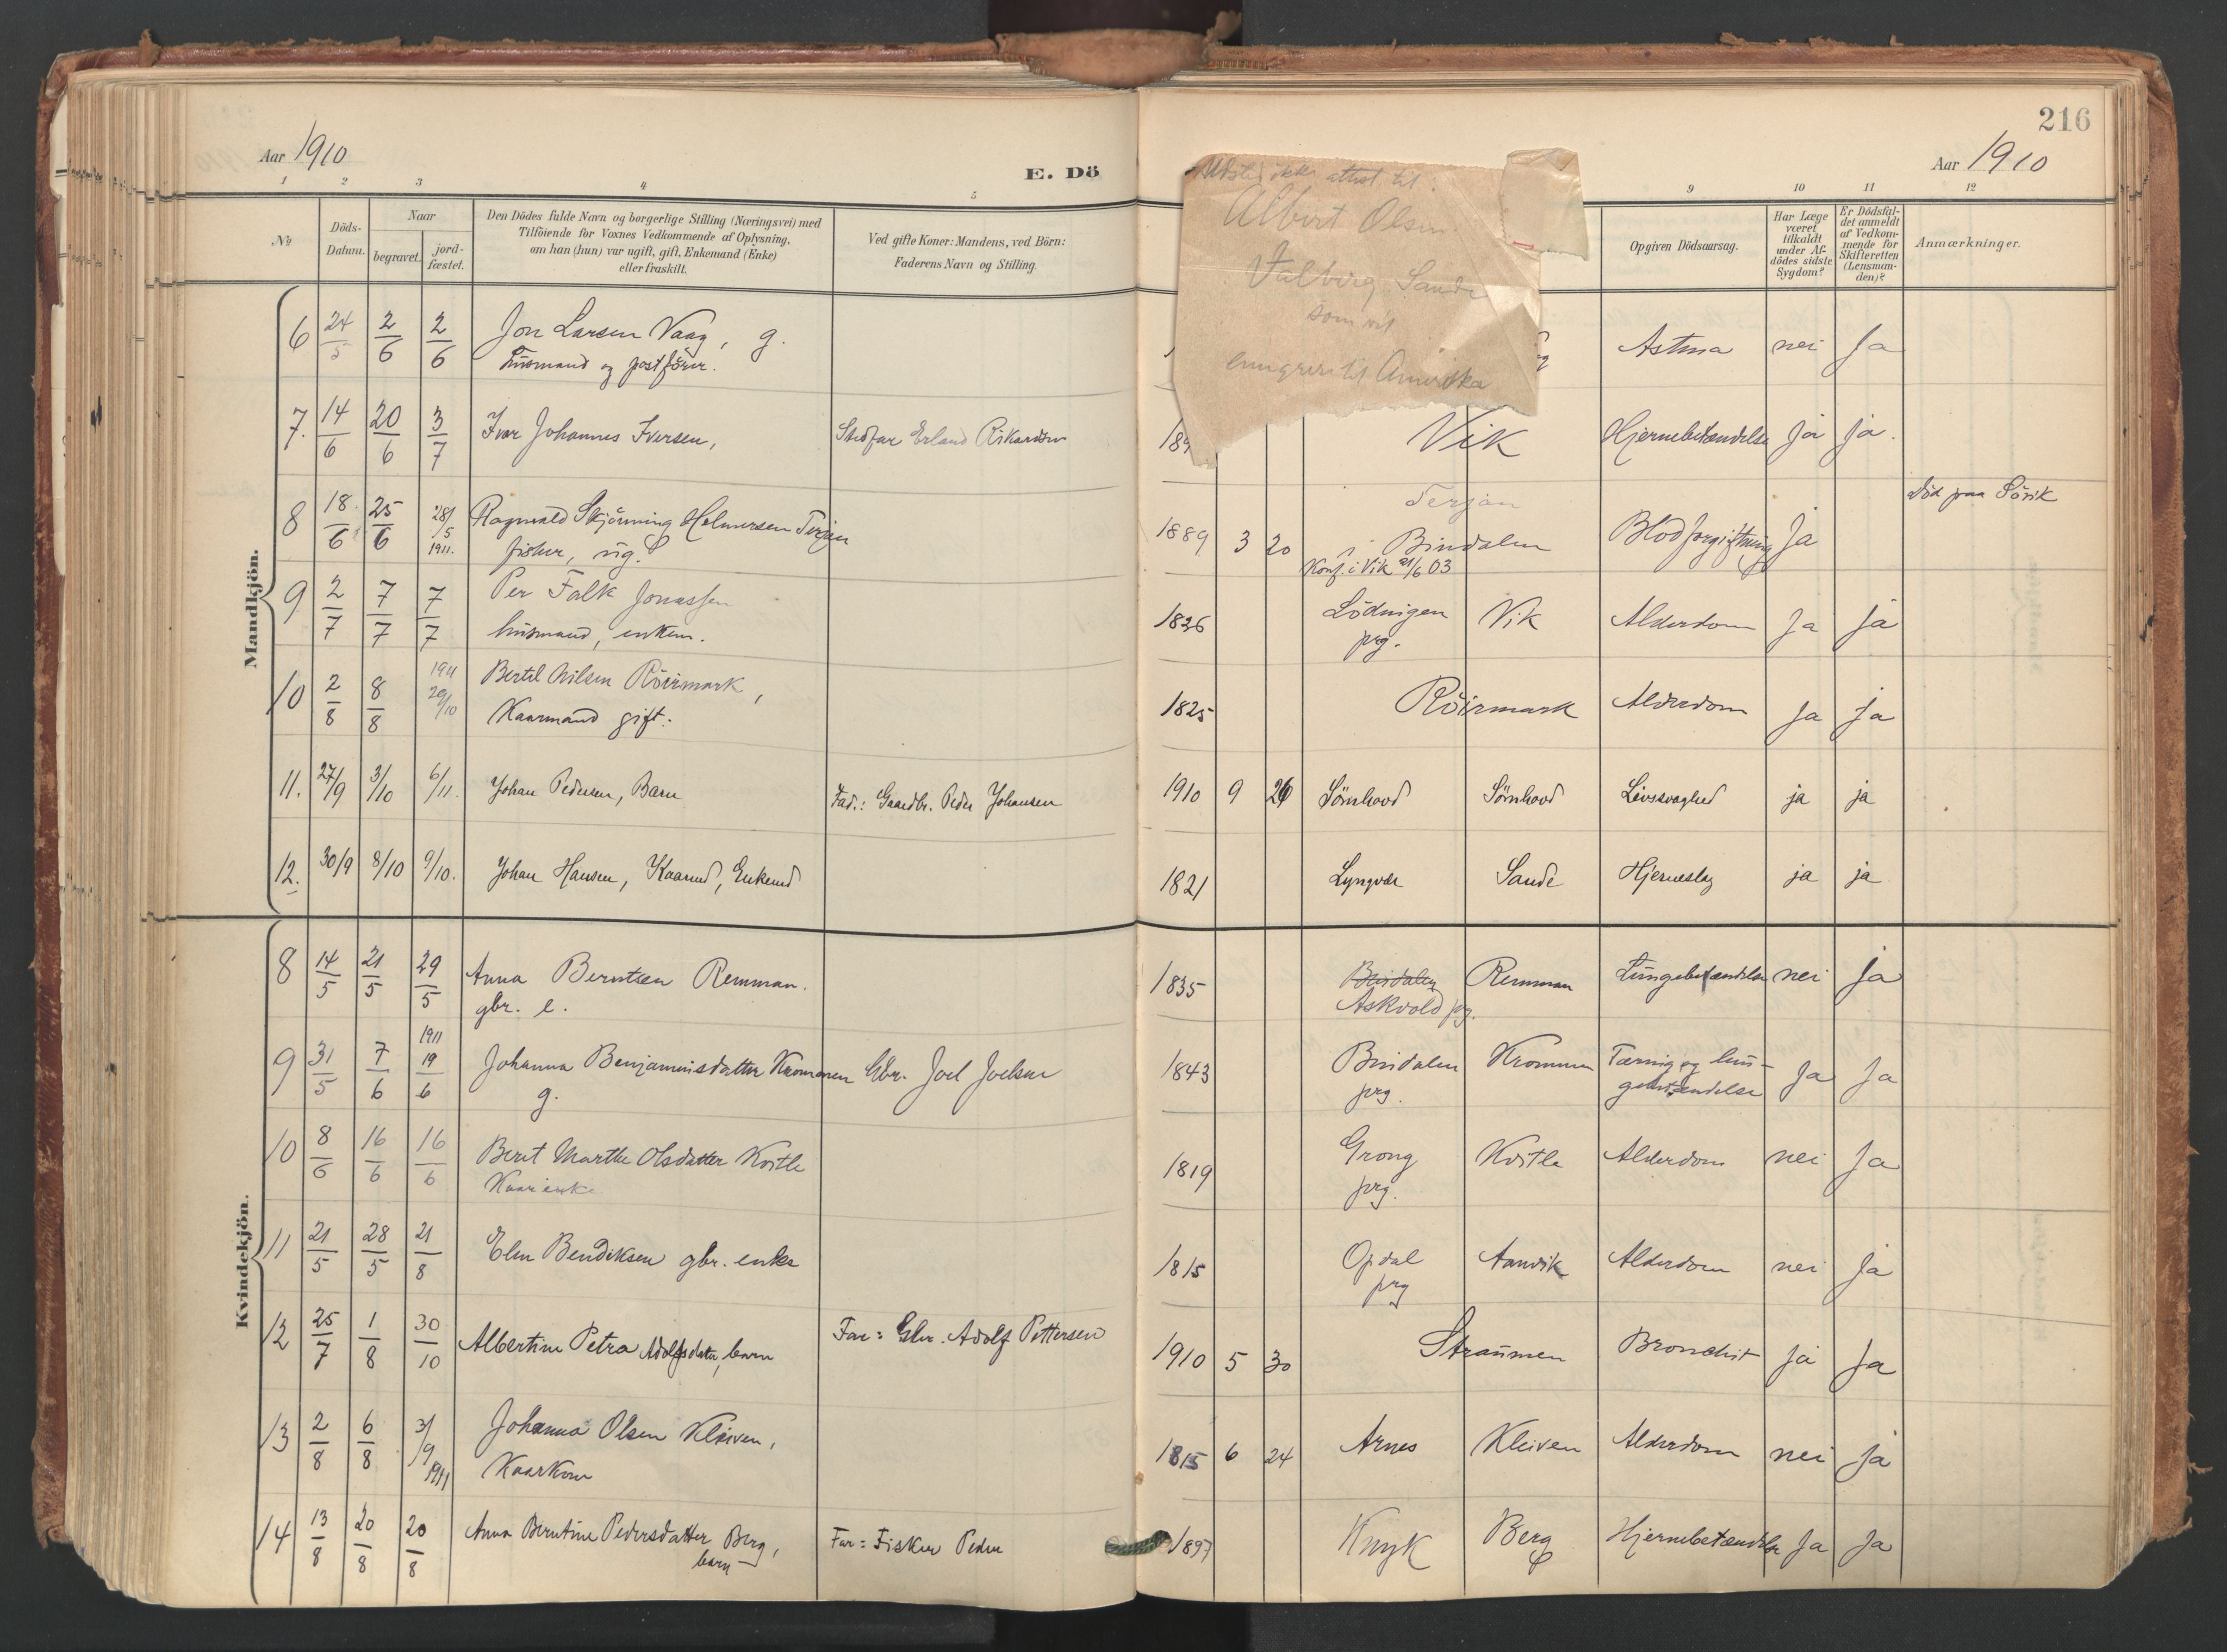 216
Aar 1910
E. Dö
Aar 1910
1 2 3 4 5
9 10 11 12
No
Döds-Datum.
Naar
begravet.
jord-fæstet.
Den Dödes fulde Navn og borgerlige Stilling (Næringsvei) med
Tilföiende for Voxnes Vedkommende af Oplysning,
om han (hun) var ugift, gift, Enkemand (Enke)
eller fraskilt.
Ved gifte Koner: Mandens, ved Börn:
Faderens Navn og Stilling.
Opgiven Dödsaarsag.
Har Læge
været
tilkaldt
under Af-
dödes sidste
Sygdom?
Er Dödsfal-
det anmeldt
af Vedkom-
mende for
Skifteretten
(Lensman-
den)?
Anmærkninger.
ikke attest til:
Albert Olsen
Valberg Sande
som vil
emigrere til Amerika
Mandkjön.
6 24/5 2/6 2/6 Jon Larsen Vaag, g. Astma nei Ja
Husmand og postförer.
7. 14/6 20/6 3/7 Ivar Johannes Iversen, Stedfar Erland Rikardsen Vik Hjernebetændelse Ja ja.
8 18/6 25/6 28/5 1911. Ragnvald Skjörning Helmersen Terjan 1889 3 20 Terjan i Bindalen Blodforgiftning Ja Död paa Sörvik
fisker, ug. Konf. i Vik 21/6 03
9 2/7 7/7 7/7 Per Falk Jonassen 1826 Lödingen prg. Vik Alderdom Ja ja
husmand, enkem.
10 2/8 8/8 1911 29/10 Bertel Nilsen Röirmark, 1825 Röirmark Alderdom Ja Ja
Kaarmand gift.
11. 27/9 3/10 6/11. Johan Pedersen, Barn Fad.: Gaardbr. Peder Johansen 1910 9 26 Sömhovd Sömhovd Livssvaghed ja ja
12. 30/9 8/10 9/10. Johan Hansen, Kaarmd, Enkemd 1821 Lyngvær Sande Hjerneslag ja ja
Kvindekjön.
8 14/5 21/5 29/5 Anna Berntsen Remman. 1835 Bindalen Askvold prg. Remman Lungebetændelse nei Ja
gbr. e.
9 31/5 7/6 1911 19/6 Johanna Benjaminsdatter Kromoen Gbr. Joel Joelsen 1843 Bindalen prg. Kromoen Tæring og lun-
gebetændelse Ja Ja
g.
10 8/6 16/6 16/6 Berit Marthe Olsdatter Kvitle 1819 Grong prg. Kvitle Alderdom nei Ja
Kaarenke
11 21/5 28/5 21/8 Elen Bendiksen gbr. enke 1815 Opdal prg Aanvik Alderdom nei Ja
12 25/7 1/8 30/10 Albertine Petra Adolfsdatter, barn Far: Gbr. Adolf Pettersen 1910 5 30 Straumen Bronchit Ja Ja
13 2/8 6/8 3/9 1911 Johanna Olsen Kleiven, 1815 6 24 Arnes Kleiven Alderdom nei Ja
Kaarkone
14 13/8 20/8 20/8 Anna Berntine Pedersdatter Berg, Far: Fisker Peder 1897 Kmyk Berg Hjernebetændelse Ja Ja
barn